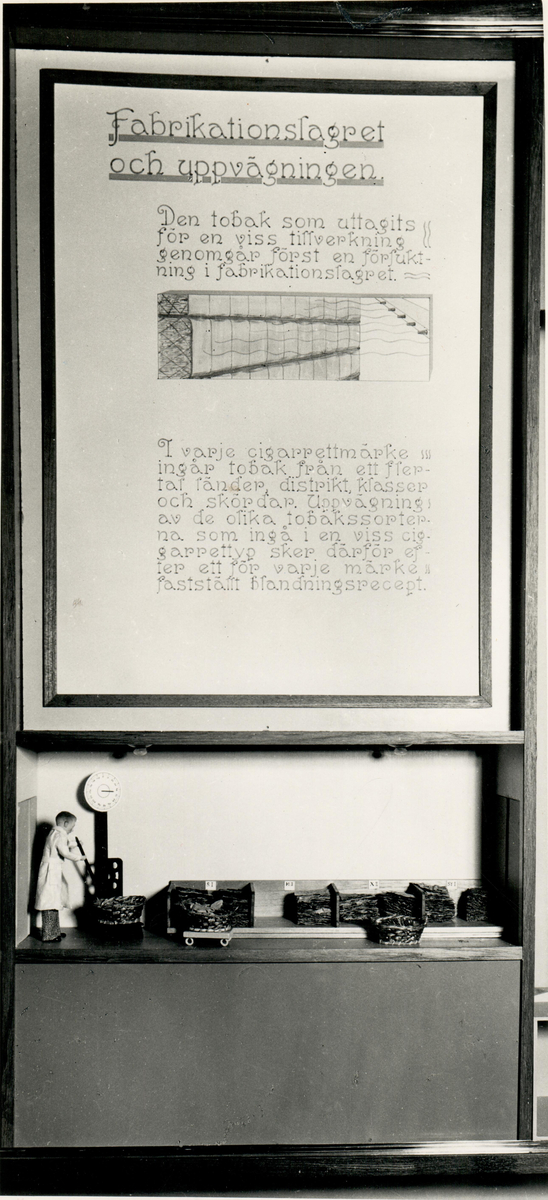 Fabrikationslagret
och uppvägningen.
Den tobak som uttagits
för en viss tillverkning
genomgår först en förfukt-
ning i fabrikationslagret.
I varje cigarrettmärke
ingår tobak från ett fler-
tal länder, distrikt, klasser
och skördar. Uppvägning
av de olika tobakssorter-
na som ingå i en viss cig-
garrettyp sker därför ef-
ter ett för varje märke
fastställt blandningsrecept.